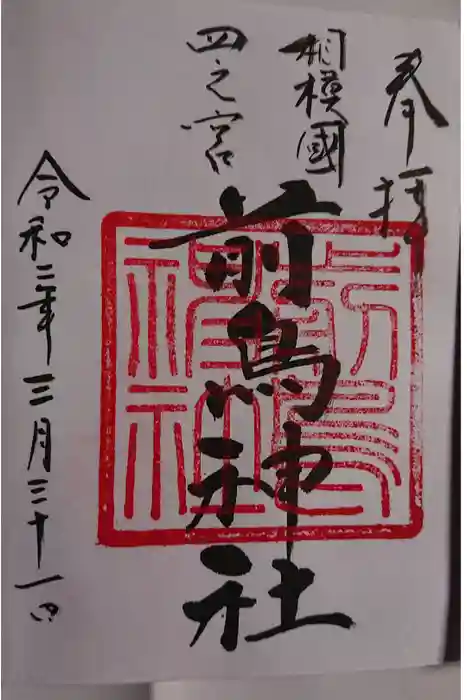 奉拝
相模國
四之宮
前鳥神社
令和三年三月三十一日